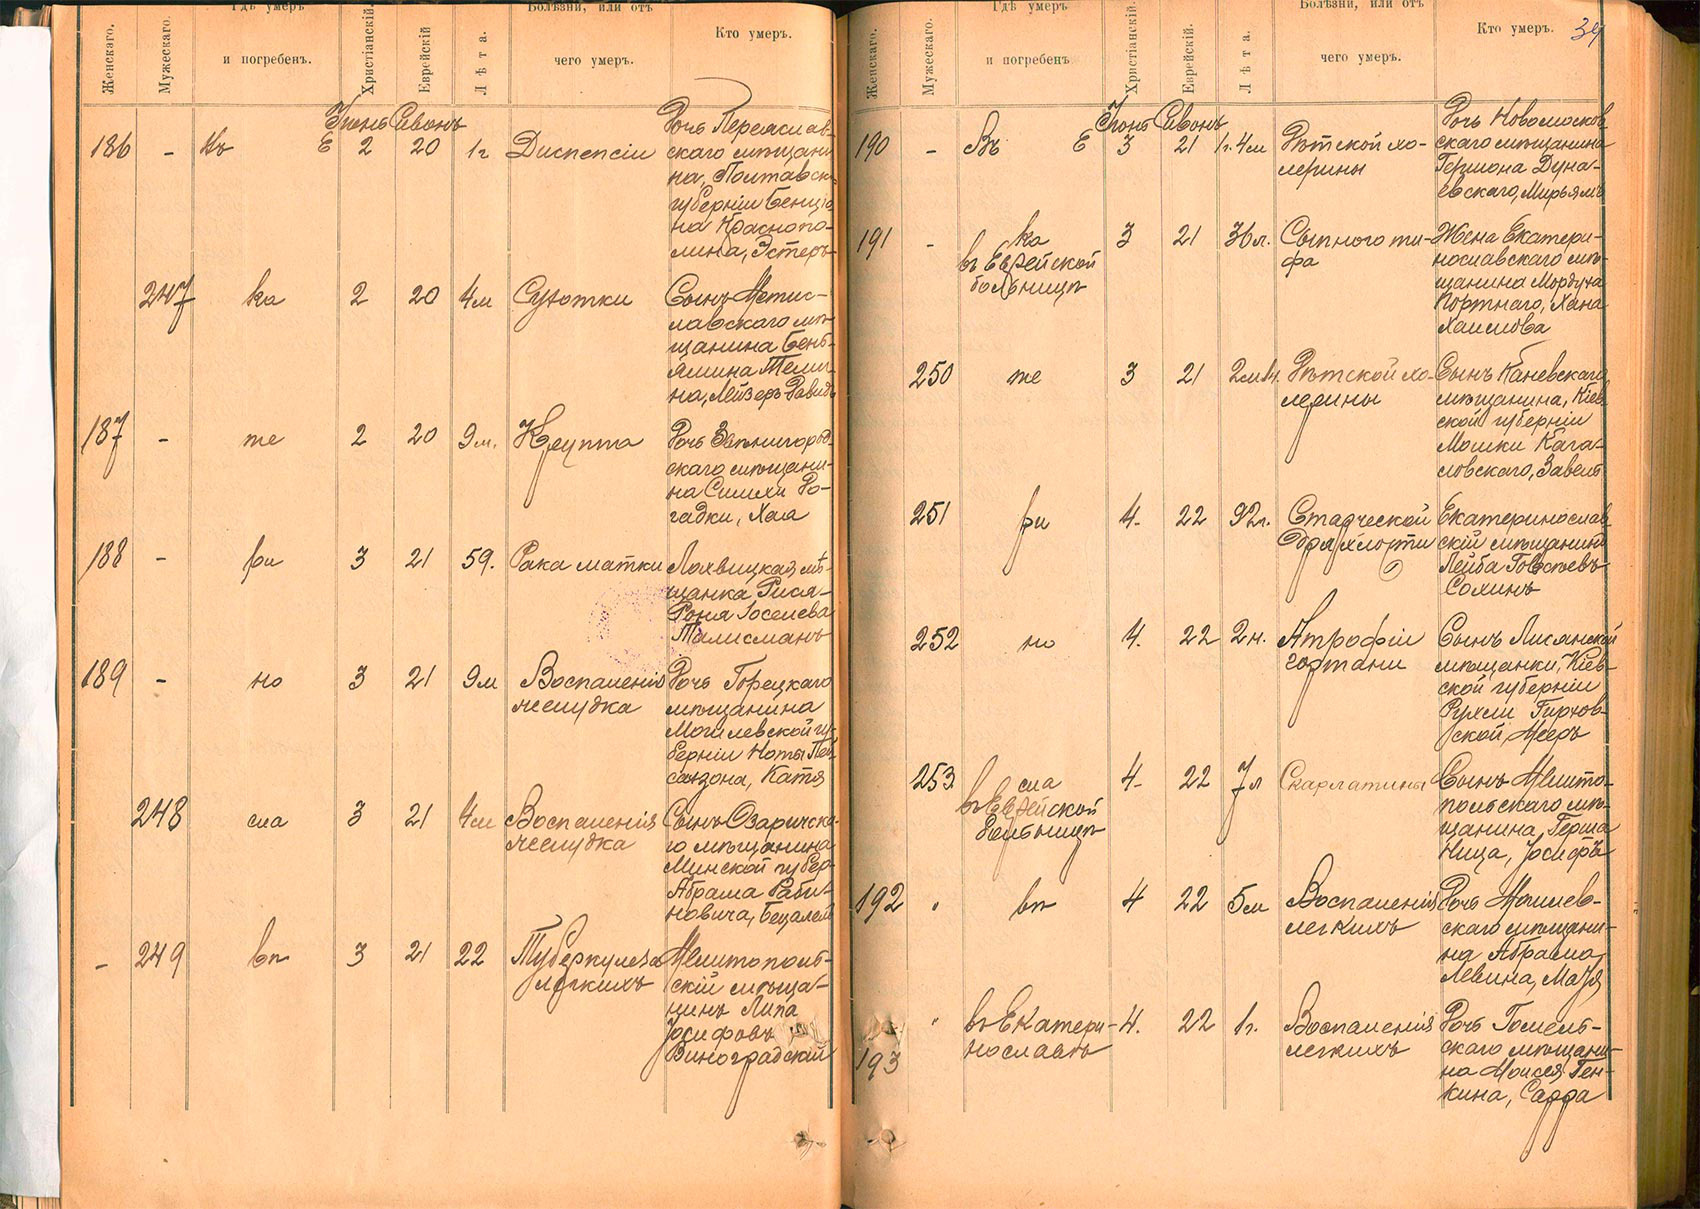 Женскаго.
Мужескаго.
Гдѣ умеръ
и погребенъ.
Христіанскій.
Еврейскій
Лѣта.
Болѣзни, или отъ
чего умеръ.
Кто умеръ.
Іюнь Сивонъ
186 - Въ Е 2 20 1 г Диспепсіи
Дочь Переяслав-
скаго мѣщани
на, Полтавск.
губерніи Бенціо
на Краснопо-
лина, Эстеръ
247 ка 2 20 4 м Сухотки
Сынъ Мстис-
лавскаго мѣ-
щанина Бень-
ямина
на, Лейзеръ Давидъ
187 - те 2 20 9 м. Круппа
Дочь Звѣнигород-
скаго мѣщани-
на Симхи Ро-
гадки, Хая
188 - ри 3 21 59. Рака матки
Лохвицкая мѣ-
щанка Рися-
Роня Іоселева
Талисманъ
189 - но 3 21 9 м Воспаленія
желудка
Дочь Горецкаго
мѣщанина
Могилевской гу-
берніи Ноты
Катя
248 сла 3 21 4 м Воспаленія
желудка
Сынъ Озаричска-
го мѣщанина
Минской губер-
Абрама Раби-
новича, Бецалель
- 249 вѣ 3 21 22 Туберкулеза
легкихъ
Мелитополь-
скій мѣща-
нинъ Липа
Іосифовъ
Виноградскій
Женскаго.
Мужескаго.
Гдѣ умеръ
и погребенъ
Христіанскій.
Еврейскій.
Лѣта.
Болѣзни, или отъ
чего умеръ.
Кто умеръ.
39
Іюнь Сивонъ
190 - Въ Е 3 21 1 г. 4 м Дѣтской хо-
лерины
Дочь Новомосков
скаго мѣщанина
Гершона Дуна-
евскаго, Мирьямъ
191 - ка 3 21 36 л. Сыпного ти-
въ Еврейской фа
больницѣ
Жена Екатери-
нославскаго мѣ-
щанина Мордуха
Портнаго, Хана
Хаимова
250 те 3 21 Дѣтской хо-
лерины
Сынъ Каневскаго
мѣщанина, Кіев
ской губерніи
Мошки Кага-
ловскаго,
251 ри 4. 22 92 л. Старческой
дряхлости
Екатеринослав
скій мѣщанинъ
Лейба
Солинъ
252 но 4. 22 2 н. Атрофіи
гортани
Сынъ Лисянской
мѣщанки, Кіев-
ской губерніи
Рухли
ской, Мееръ
253 сла 4- 22 7 л Скарлатины
въ Еврейской
больницѣ
Сынъ Мелито-
польскаго мѣ-
щанина, Герша
Ница, Іосифъ
192 " вѣ 4 22 5 м Воспаленія
легкихъ
Дочь Могилев-
скаго мѣщани-
на Абрама
Левина,
193 " въ Екатери- 4. 22 1 г. Воспаленія
нославѣ легкихъ
Дочь Гомель-
скаго мѣщани-
на Моисея Ген-
кина, Сарра